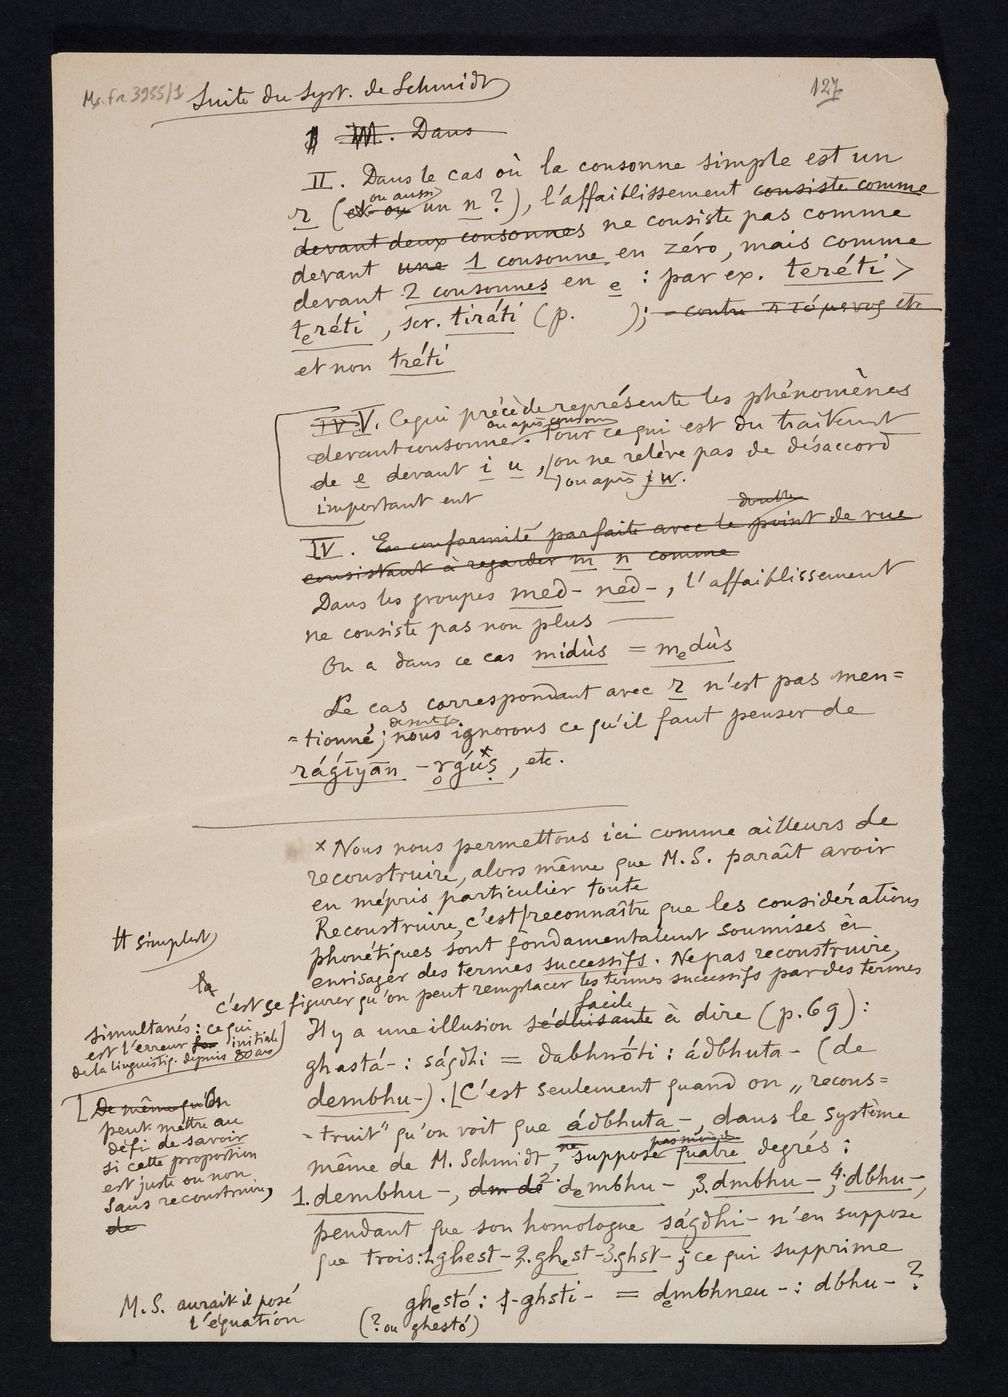 Ms. fr. 3955/1
127
Suite du syst. de Schmidt
III. Dans
II. Dans le cas où la consonne simple est un
ou aussi
r (et ou un n ?), l'affaiblissement consiste comme
devant deux consonnes ne consiste pas comme
devant une 1 consonne en zéro, mais comme
devant 2 consonnes en e : par ex. teréti >
teréti, scr. tiráti (p. ); – contre πτόμενος etc
et non tréti
IV V. Ce qui précède représente les phénomènes
ou après consonne
devant consonne. Pour ce qui est du traitement
de e devant i u, on ne relève pas de désaccord
ou après i u.
important ent
double
IV. En conformité parfaite avec le point de vue
consistant à regarder m n comme
Dans les groupes med- ned-, l'affaiblissement
ne consiste pas non plus ——
On a dans ce cas midùs = medùs
Le cas correspondant avec r n'est pas men=
=tionné; nous ignorons ce qu'il faut penser de
rágīyān – r̥gúṣ×, etc.
× Nous nous permettons ici comme ailleurs de
reconstruire, alors même que M. S. paraît avoir
en mépris particulier toute
Reconstruire, c'est reconnaître que les considérations
phonétiques sont fondamentalement soumises à
envisager des termes successifs. Ne pas reconstruire,
c'est se figurer qu'on peut remplacer les termes successifs par des termes
simultanés : ce qui
est l'erreur initiale
de la linguistiq. depuis 80 ans
# simplent
facile
Il y a une illusion séduisante à dire (p. 69) :
ghastá- : ságdhi = dabhnóti : ádbhuta- (de
dembhu-). [C'est seulement quand on „recons=
=truit" qu'on voit que ádbhuta- dans le système
ne pas moins de
même de M. Schmidt, suppose quatre degrés :
1. dembhu-, dm de 2. dembhu-, 3. dmbhu-, 4. dbhu-,
pendant que son homologue ságdhi- n'en suppose
que trois : 1. ghest- 2. ghest- 3. ghst- ; ce qui supprime
[De même qu'On
peut mettre au
défi de savoir
si cette proportion
est juste ou non
sans reconstruire,
de
M. S. aurait-il posé
l'équation
ghestó : ghsti- = dembhneu- : dbhu- ?
(? ou ghestó)